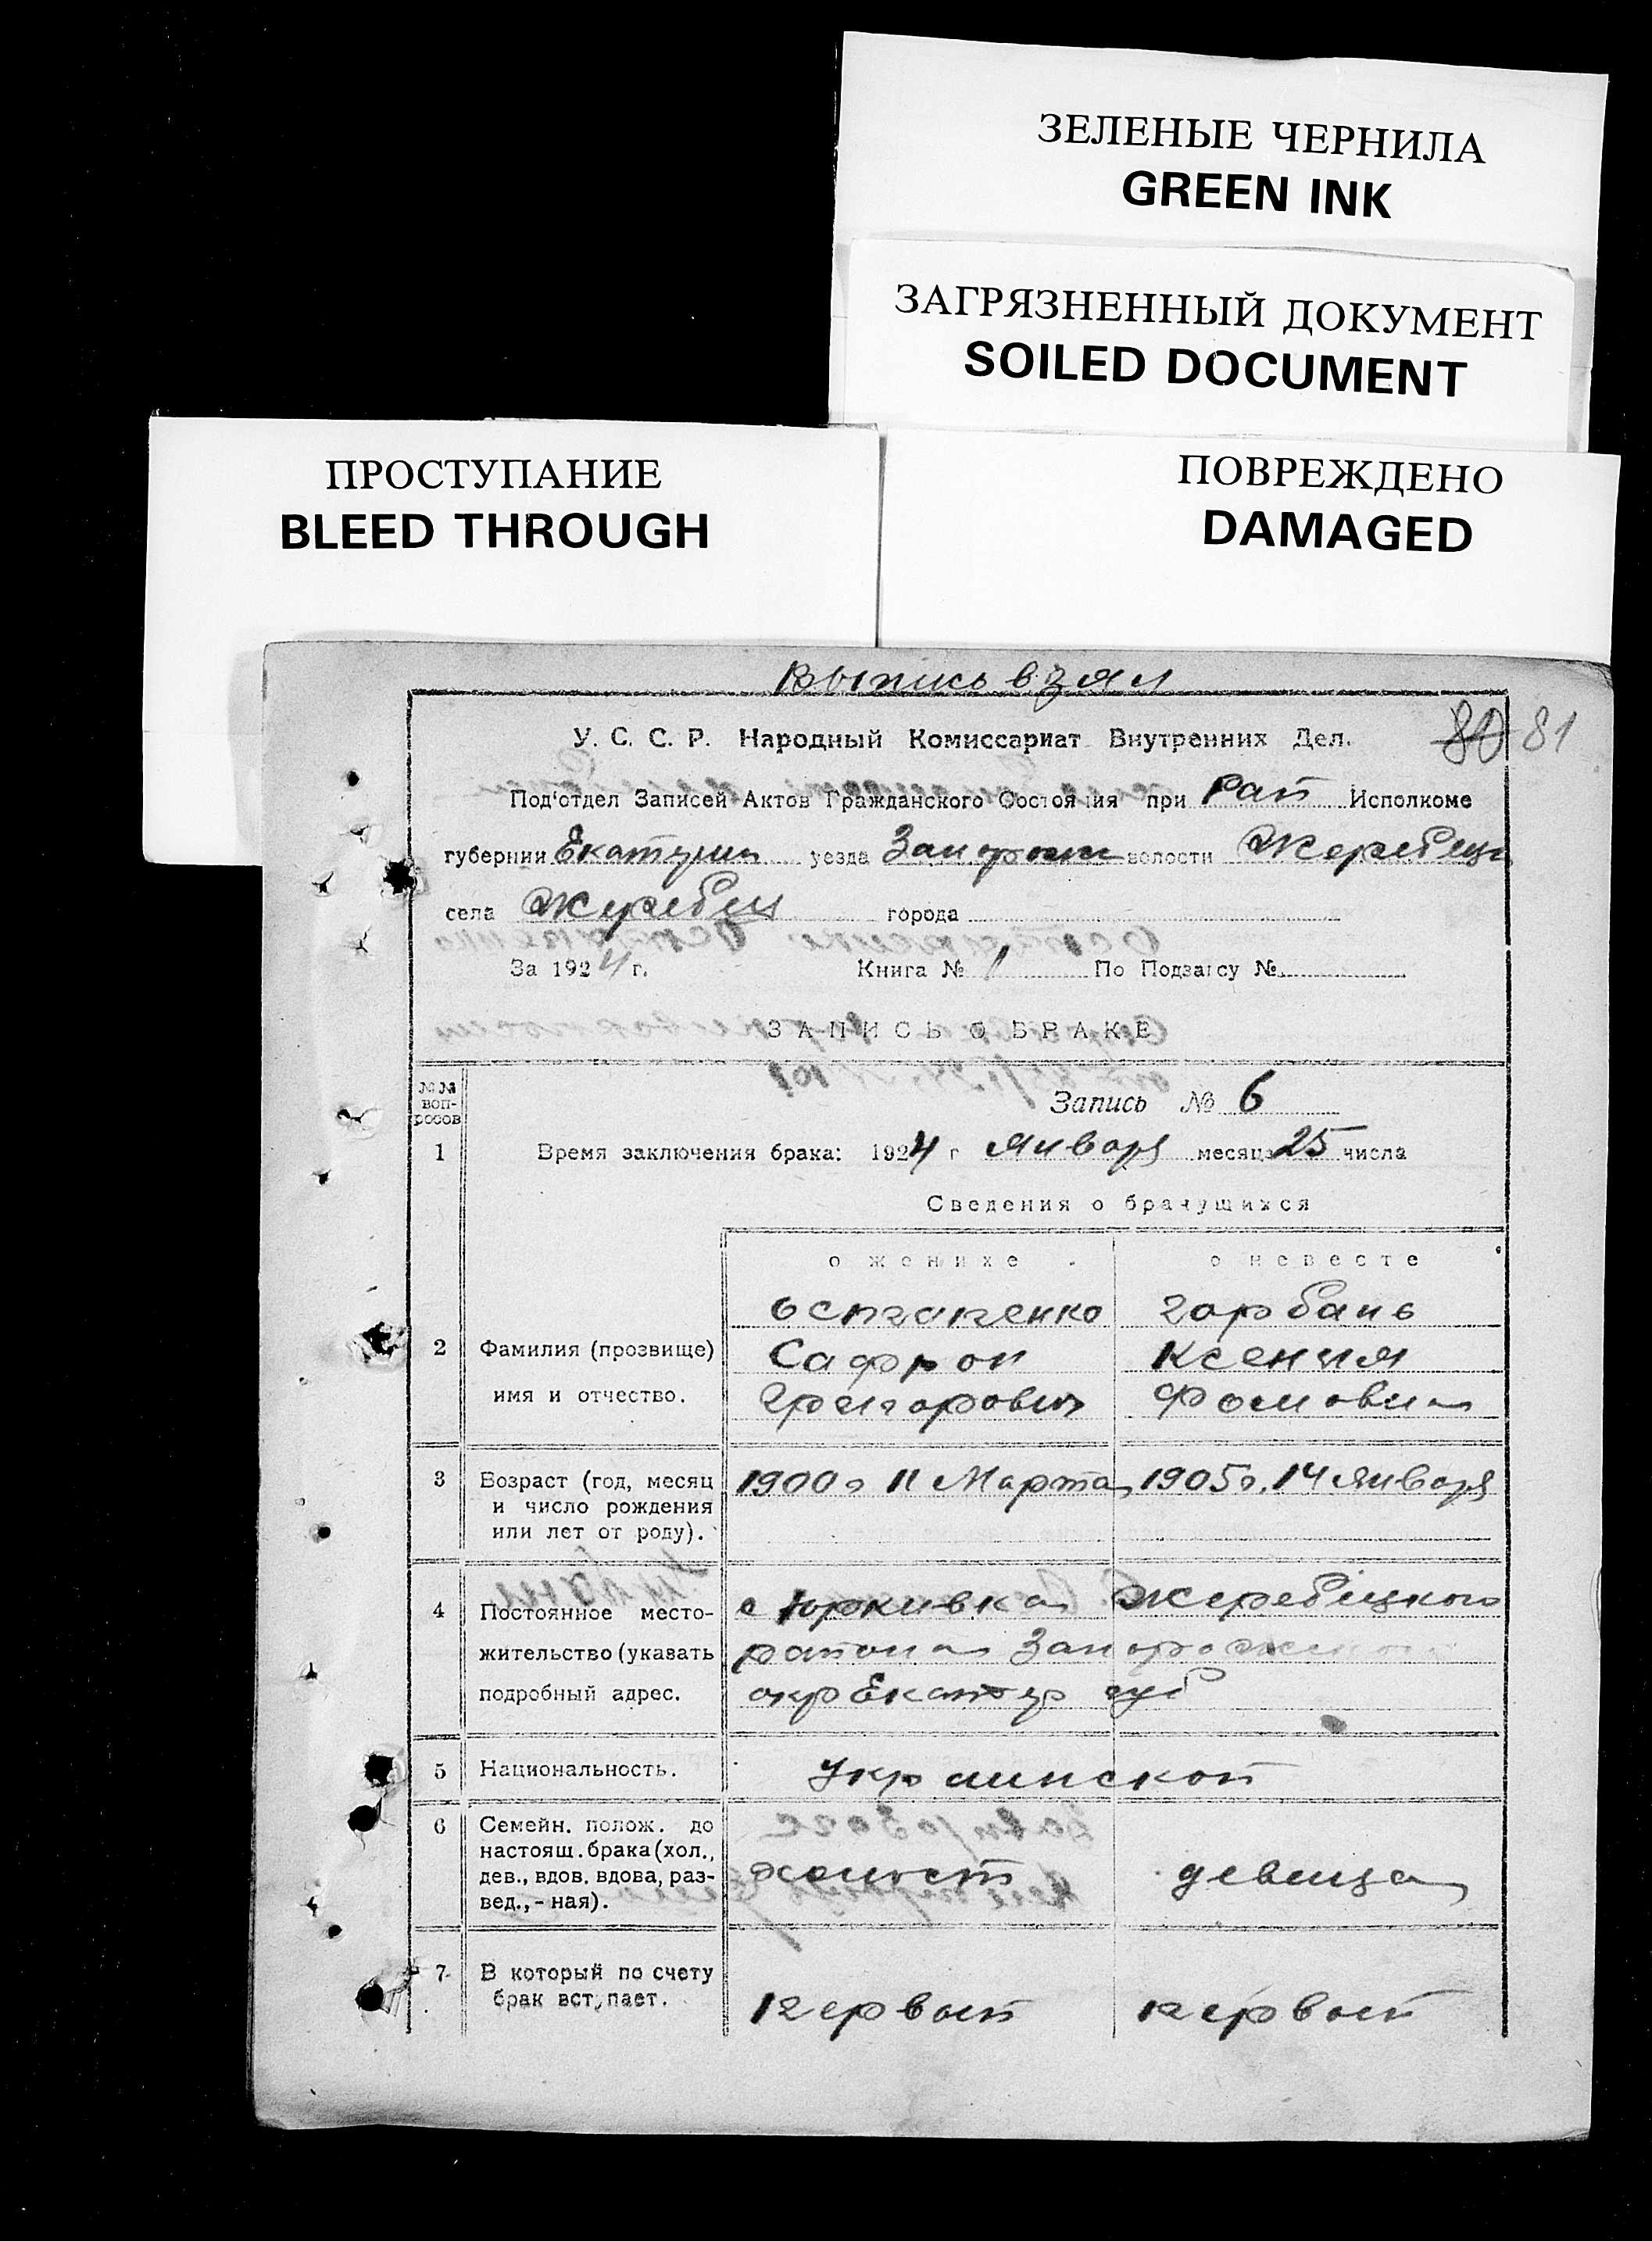 ЗЕЛЕНЫЕ ЧЕРНИЛА
GREEN INK
ЗАГРЯЗНЕННЫЙ ДОКУМЕНТ
SOILED DOCUMENT
ПРОСТУПАНИЕ
BLEED THROUGH
ПОВРЕЖДЕНО
DAMAGED
Выпись взял
У. С. С. Р. Народный Комиссариат Внутренних Дел.
80 81
Под'отдел Записей Актов Гражданского Состояния при Рай Исполкоме
губернии уезда волости
села города
За 1924 г. Книга № 1 По Подзагсу №
ЗАПИСЬ О БРАКЕ
№№ воп-
росов
Запись № 6
1 Время заключения брака: 1924 г Января месяца 25 числа
Сведения о брачущихся
о женихе о невесте
Остапенко Горбань
2 Фамилия (прозвище) Сафрон Ксения
имя и отчество. Григорович Фомовна
3 Возраст (год, месяц 1900 г 11 Марта 1905 г. 14 Января
и число рождения
или лет от роду).
4 Постоянное место- с Юркивка Жеребецкого
жительство (указать района
подробный адрес. окр Екатер губ
5 Национальность. Украинской
6 Семейн. полож. до
настоящ. брака (хол.,
дев., вдов. вдова, раз- холост девица
вед., - ная).
7 В который по счету
брак вступает. первый первый